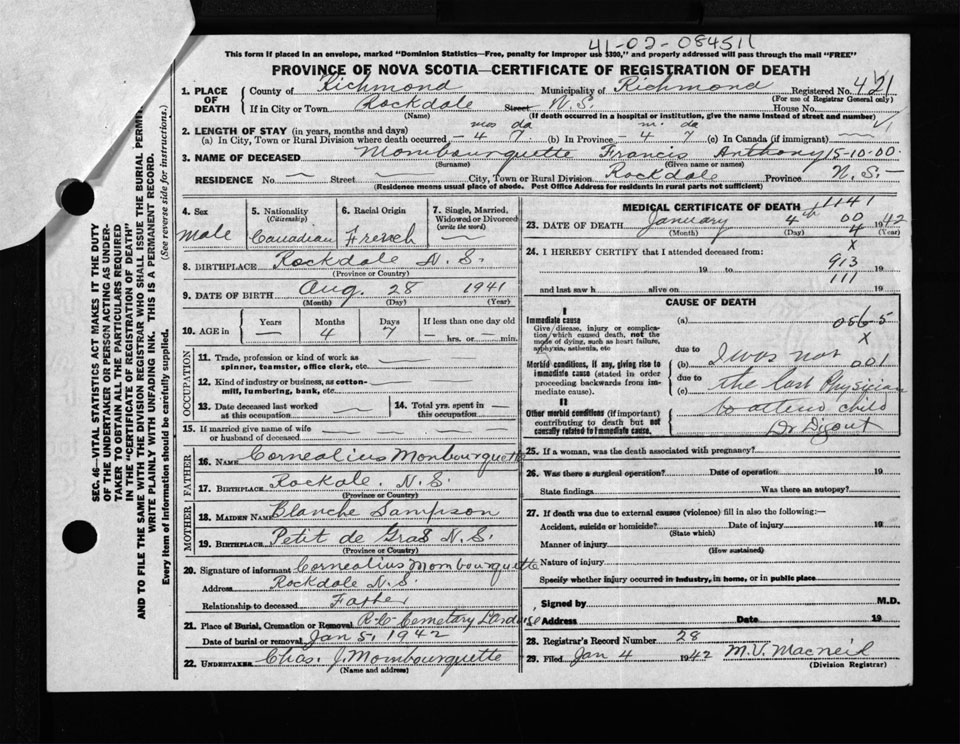 41-02-084511
This form if placed in an envelope, marked "Dominion Statistics—Free, penalty for improper use $300," and properly addressed will pass through the mail "FREE"
PROVINCE OF NOVA SCOTIA—CERTIFICATE OF REGISTRATION OF DEATH
1. PLACE OF DEATH County of Richmond Municipality of Richmond Registered No. 421
(For use of Registrar General only)
If in City or Town Rockdale Street N.S. House No.
(Name) (If death occurred in a hospital or institution, give the name instead of street and number)
2. LENGTH OF STAY (in years, months and days) mos da m. da
(a) In City, Town or Rural Division where death occurred – 4 7 (b) In Province – 4 7 (c) In Canada (if immigrant)
3. NAME OF DECEASED Mombourquette Francis Anthony 15-10-00
(Surname) (Given name or names)
RESIDENCE No. — Street — City, Town or Rural Division Rockdale Province N.S.
(Residence means usual place of abode. Post Office Address for residents in rural parts not sufficient)
4. Sex Male
5. Nationality (Citizenship) Canadian
6. Racial Origin French
7. Single, Married, Widowed or Divorced (write the word) —
8. BIRTHPLACE Rockdale N.S.
(Province or Country)
9. DATE OF BIRTH Aug. 28 1941
(Month) (Day) (Year)
10. AGE in Years — Months 4 Days 7 If less than one day old — hrs. or — min.
OCCUPATION
11. Trade, profession or kind of work as spinner, teamster, office clerk, etc. —
12. Kind of industry or business, as cotton-mill, lumbering, bank, etc. —
13. Date deceased last worked at this occupation —
14. Total yrs. spent in this occupation —
15. If married give name of wife or husband of deceased —
FATHER
16. NAME Cornealius Monbourquette
17. BIRTHPLACE Rockdale. N.S.
(Province or Country)
MOTHER
18. MAIDEN NAME Blanche Sampson
19. BIRTHPLACE Petit de Gras N.S.
(Province or Country)
20. Signature of informant Cornealius Mombourquette
Address Rockdale N.S.
Relationship to deceased Father
21. Place of Burial, Cremation or Removal R-C- Cemetary
Date of burial or removal Jan 5, 1942
22. UNDERTAKER Chas. J. Mombourquette
(Name and address)
MEDICAL CERTIFICATE OF DEATH 1141
23. DATE OF DEATH January 4th 00 1942
(Month) (Day) 4 (Year)
24. I HEREBY CERTIFY that I attended deceased from: x
19 to 913 19
and last saw h alive on 111 19
CAUSE OF DEATH
I
Immediate cause
Give disease, injury or complication which caused death, not the mode of dying, such as heart failure, asphyxia, asthenia, etc
(a) 0565
due to x
Morbid conditions, if any, giving rise to immediate cause (stated in order proceeding backwards from immediate cause).
(b) I was not 001
due to
(c) the last Physician
II
Other morbid conditions (if important) contributing to death but not causally related to immediate cause.
to attend child
Dr Digout
25. If a woman, was the death associated with pregnancy?
26. Was there a surgical operation? Date of operation 19
State findings Was there an autopsy?
27. If death was due to external causes (violence) fill in also the following:—
Accident, suicide or homicide? Date of injury 19
(State which)
Manner of injury
(How sustained)
Nature of injury
Specify whether injury occurred in industry, in home, or in public place
Signed by M.D.
Address Date 19
28. Registrar's Record Number 28
29. Filed Jan 4 1942 M.V. Macneil
(Division Registrar)
SEC. 46—VITAL STATISTICS ACT MAKES IT THE DUTY
OF THE UNDERTAKER OR PERSON ACTING AS UNDER-
TAKER TO OBTAIN ALL THE PARTICULARS REQUIRED
IN THE "CERTIFICATE OF REGISTRATION OF DEATH"
AND TO FILE THE SAME WITH THE DIVISION REGISTRAR WHO SHALL ISSUE THE BURIAL PERMIT.
WRITE PLAINLY WITH UNFADING INK. THIS IS A PERMANENT RECORD.
Every item of information should be carefully supplied. (See reverse side for instructions.)